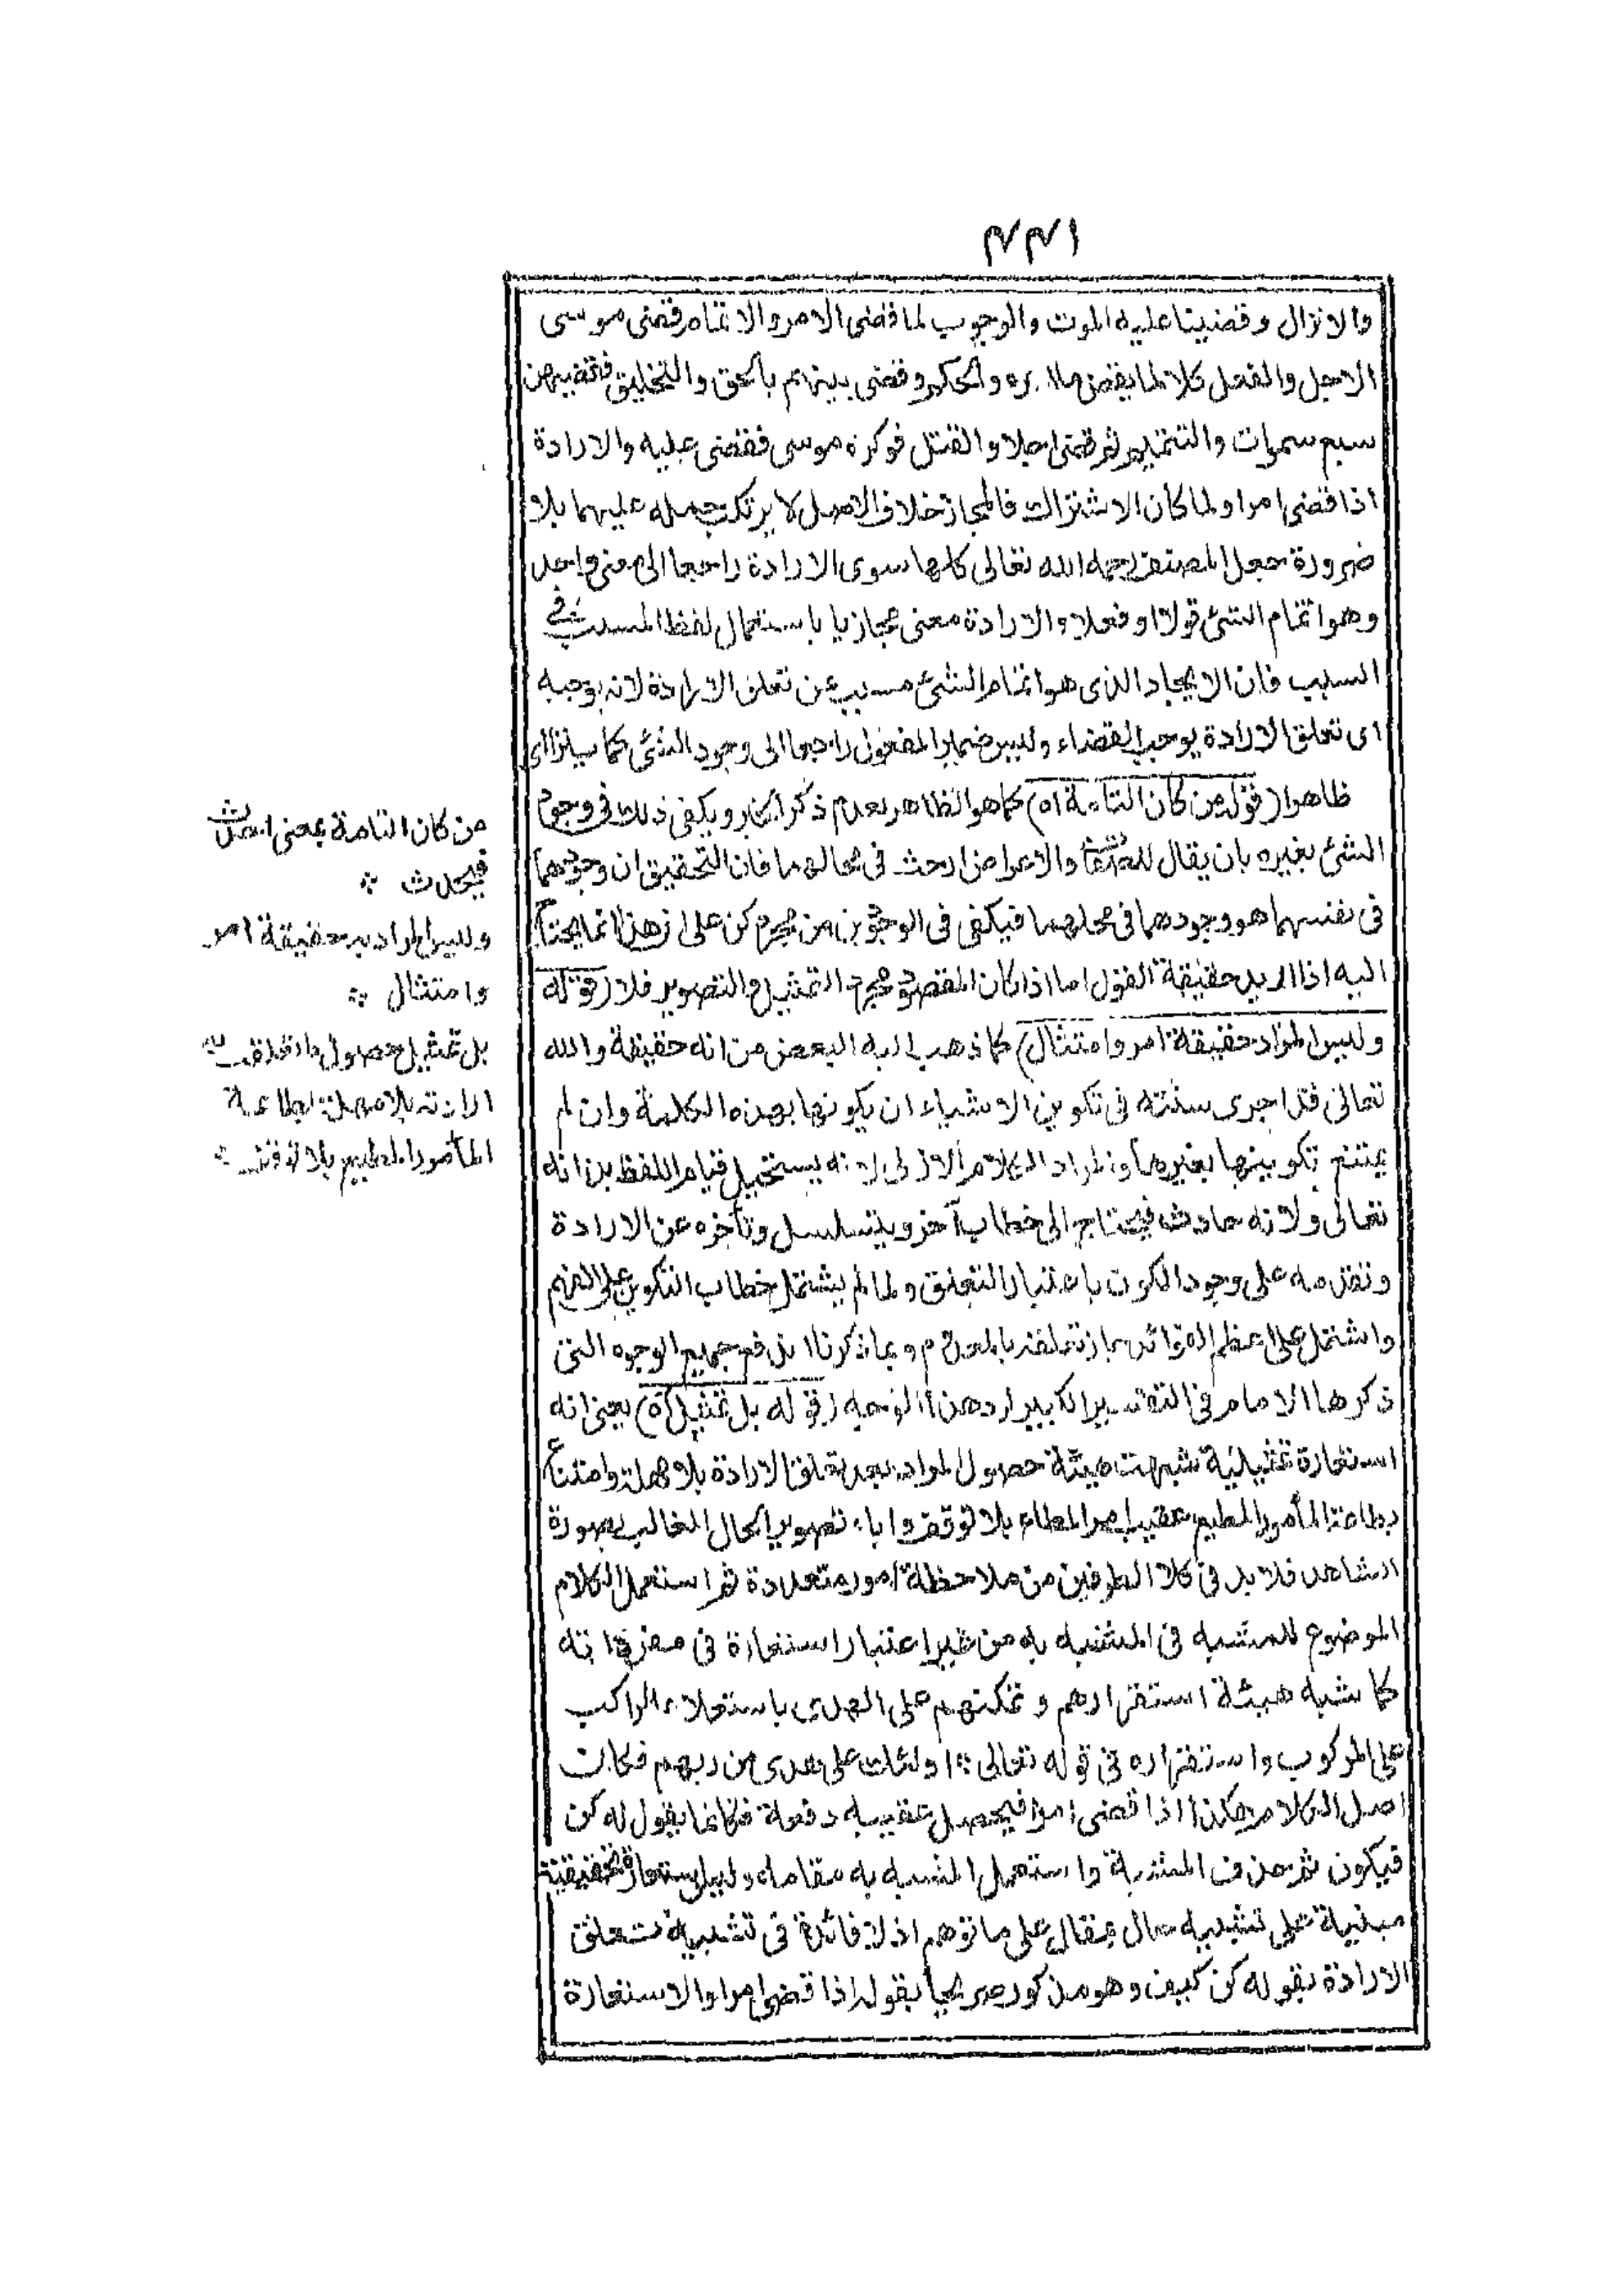 ٤٣١
والانزال وقضينا عليه الموت والوجوب لما قضى الامر والاتمام فقضى موسى
الاجل والفعل كلا لما يقض ما امره والحكم وقضى بينهم بالحق والتخليق فقضيهن
سبع سموات والتتميم ثم قضى اجلا والقتل فوكزه موسى فقضى عليه والارادة
اذا قضى امرا ولما كان الاشتراك فالمجاز خلاف الاصل لا يرتكب حمله عليهما بلا
ضرورة جعل المصنف رحمه الله تعالى كلها سوى الارادة راجعا الى معنى واحد
وهو اتمام الشئ قولا او فعلا والارادة معنى مجازيا باستعمال لفظ المسبب فى
السبب فان الايجاد الذى هو اتمام الشئ مسبب عن تعلق الارادة لانه يوجبه
اى تعلق الارادة يوجب القضاء وليس ضمير المفعول راجعا الى وجود الشئ كما
ظاهرا (قوله من كان التامة اه) كما هو الظاهر بعدم ذكر الخبر ويكفى ذلك فى وجود
الشئ بغيره بان يقال والاعراض احدث فى محالها فان التحقيق ان وجودهما
فى نفسهما هو وجودهما فى محلهما فيكفى فى الوجودين من مجرد كن على ان هذا انما يحتاج
اليه اذا اريد حقيقة القول اما اذا كان المقصود مجرد التمثيل والتصوير فلا (قوله
وليس المراد حقيقة امر وامتثال) كما ذهب اليه البعض من انه حقيقة والله
تعالى قد اجرى سنته فى تكوين الاشياء ان يكونها بهذه الكلمة وان لم
يمتنع تكوينها بغيرها والمراد الكلام الازلى لانه يستحيل قيام اللفظ بذاته
تعالى ولانه حادث فيحتاج الى خطاب آخر ويتسلسل وتأخره عن الارادة
وتقدمه على وجود الكون باعتبار التعلق ولما لم يشتمل خطاب التكوين على الفهم
واشتمل على اعظم الفوائد جاز تعلقه بالمعدوم وبما ذكرنا اندفع جميع الوجوه التى
ذكرها الامام فى التفسير الكبير لرد هذا الوجه (قوله بل تمثيل اه) يعنى انه
استعارة تمثيلية شبهت هيئة حصول المراد بعد تعلق الارادة بلا مهلة وامتناع
بطاعة المأمور المطيع عقيب امر المطاع بلا توقف واباء تصويرا لحال الغائب بصورة
الشاهد فلا بد فى كلا الطرفين من ملاحظة امور متعددة ثم استعمل الكلام
الموضوع للمشبه فى المشبه به من غير اعتبار استعارة فى مفرداته
كما شبه هيئة استقرارهم وتمكنهم على الهدى باستعلاء الراكب
على المركوب واستقراره فى قوله تعالى اولئك على هدى من ربهم فكان
اصل الكلام هكذا اذا قضى امرا فيحصل عقيبه دفعة فكانما يقول له كن
فيكون ثم حذف المشبه واستعمل المشبه به مقامه وليس استعارة تحقيقية
مبنية على تشبيه حال بمقال على ما توهم اذ لا فائدة فى تشبيه تعلق
الارادة بقوله كن كيف وهو مذكور صريحا بقوله اذا قضى امرا والاستعارة
من كان التامة بمعنى احدث
فيحدث
وليس المراد به حقيقة امر
وامتثال
بل تمثيل حصول ما تعلقت به
ارادته بلا مهلة بطاعة
المأمور المطيع بلا توقف